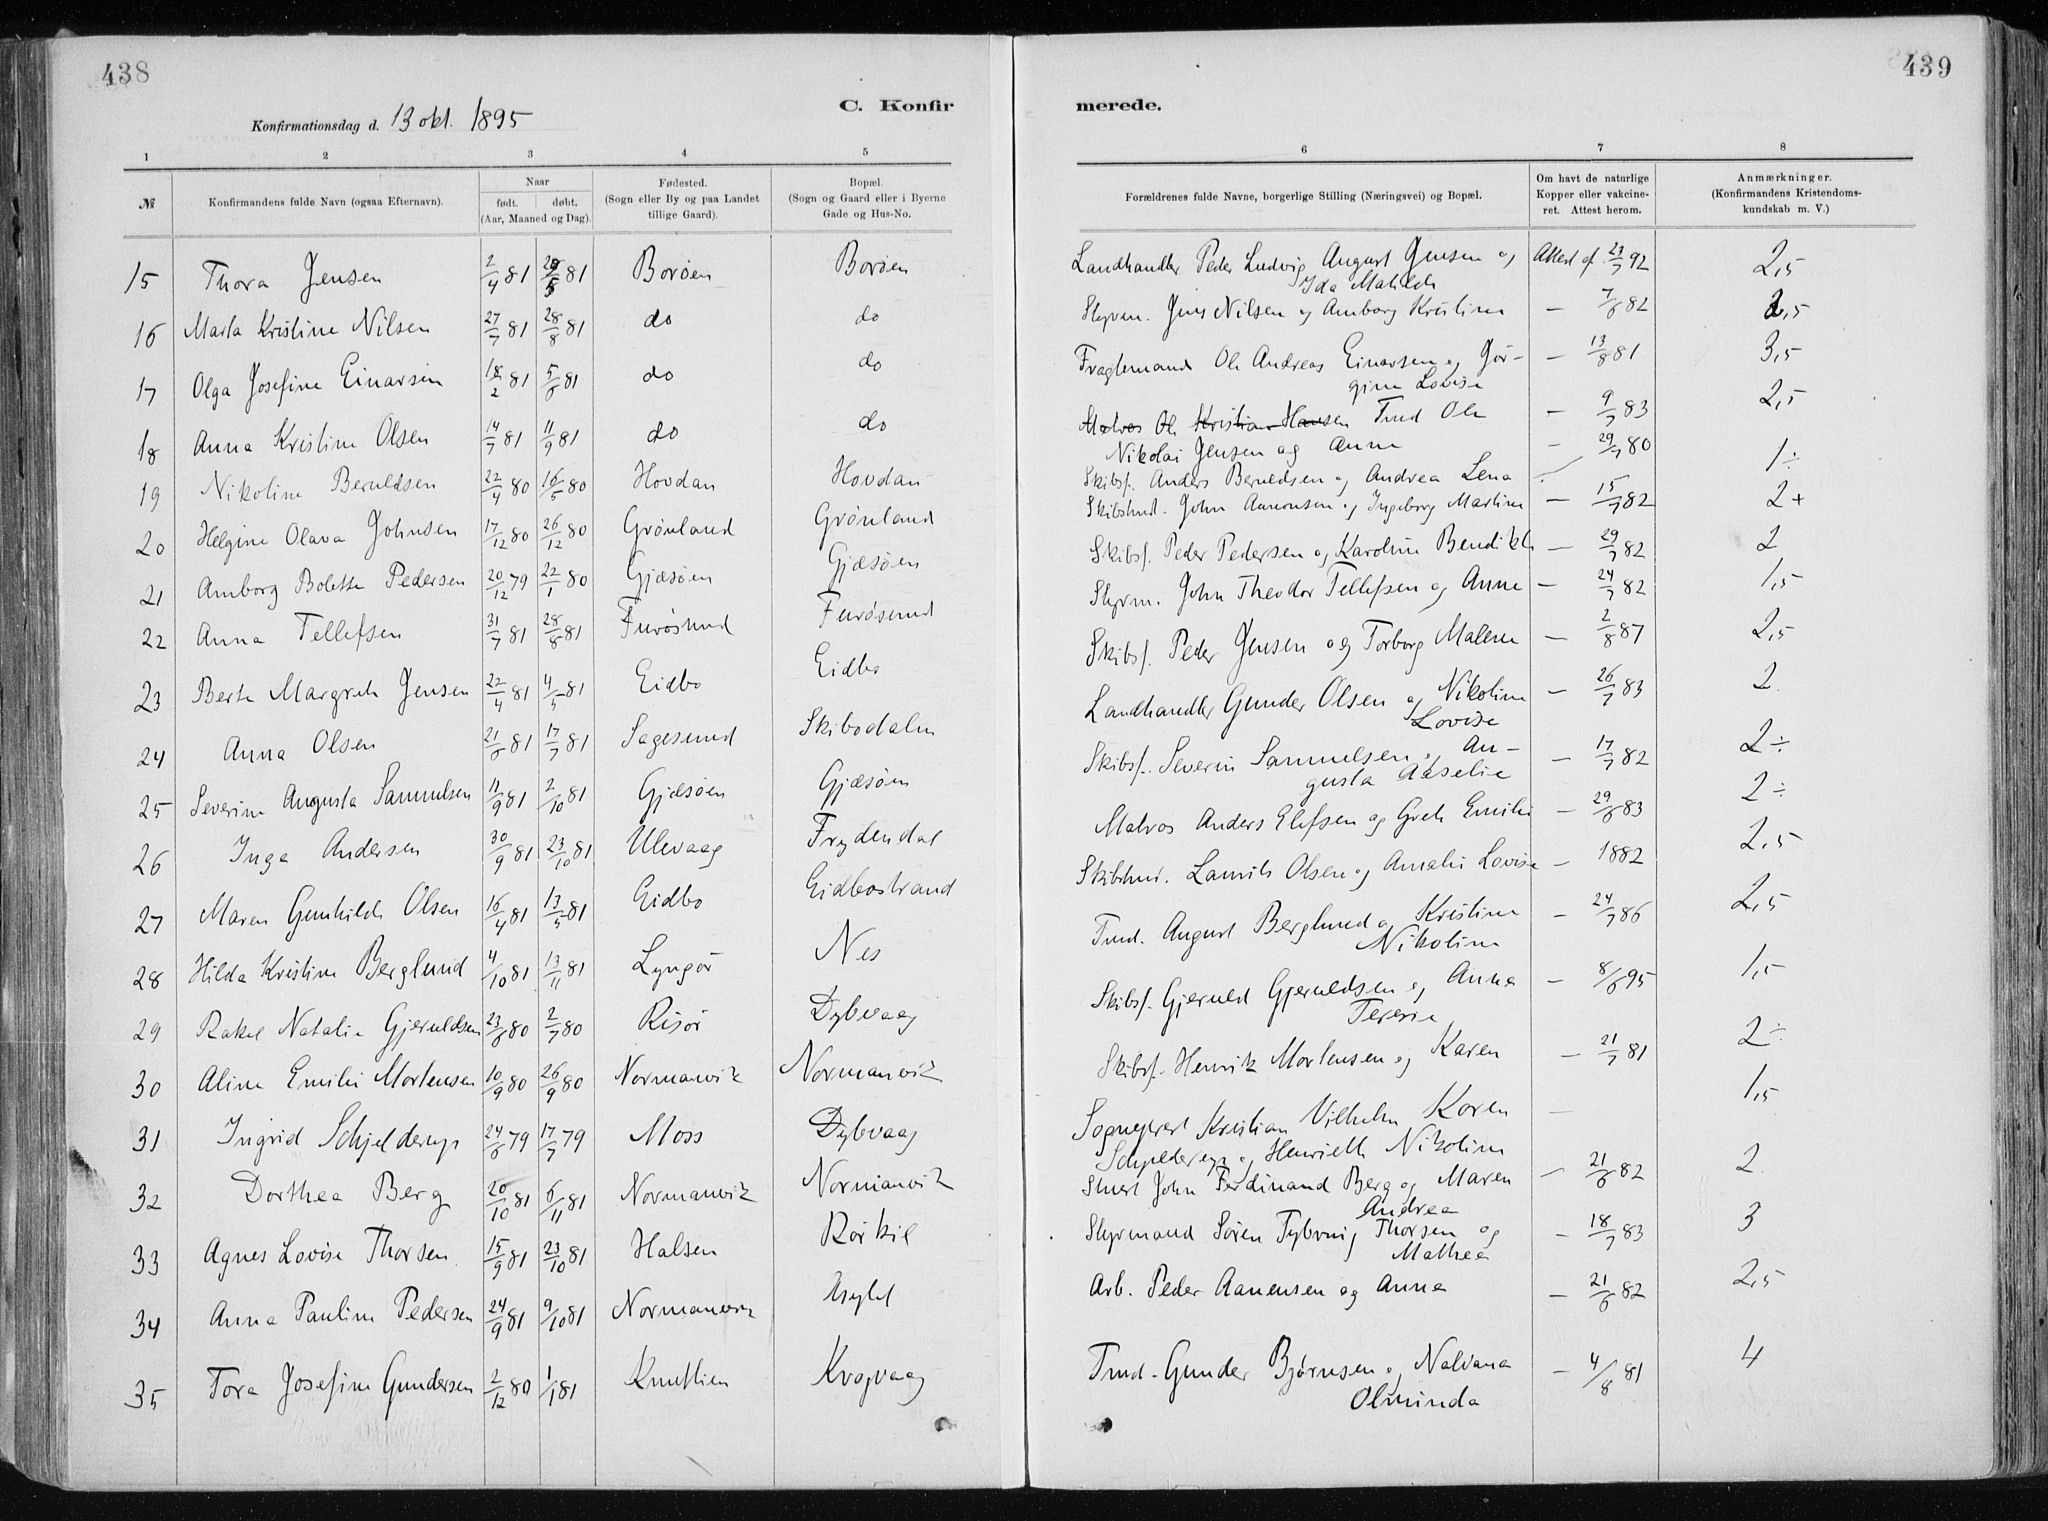 438
439
C. Konfir
merede.
Konfirmationsdag d. 13 okt. 1895
1 2 3 4 5 6 7 8
№ Konfirmandens fulde Navn (ogsaa Efternavn). Naar født. døbt. (Aar, Maaned og Dag). Fødested. (Sogn eller By og paa Landet tillige Gaard). Bopæl. (Sogn og Gaard eller i Byerne Gade og Hus-No. Forældrenes fulde Navne, borgerlige Stilling (Næringsvei) og Bopæl. Om havt de naturlige Kopper eller vakcineret. Attest herom. Anmærkninger. (Konfirmandens Kristendomskundskab m. V.)
15 Thora Jensen 2/4 81 /5 81 Borøen Borøen Landhandler Peder Ludvig August Jensen og Ida Mathilde Attest af 23/7 92 2,5
16 Marta Kristine Nilsen 27/7 81 28/8 81 do do Styrm. Jens Nilsen og Amborg Kristine — 7/6 82 2,5
17 Olga Josefine Einarsen 18/2 81 5/6 81 do do Fragtemand Ole Andreas Einarsen og Jørgine Lovise — 13/8 81 3,5
18 Anna Kristine Olsen 14/7 81 11/9 81 do do Matros Ole Kristian Hansen Tmd Ole Nikolai Jensen og Anne — 9/7 83 2,5
19 Nikoline Beruldsen 22/4 80 16/5 80 Hovdan Hovdan Skibsf. Anders Beruldsen og Andrea Lena — 29/7 80 1÷
20 Helgine Olava Johnsen 17/12 80 26/12 80 Grønland Grønland Skibstmd. John Aanonsen og Ingeborg Martine — 15/7 82 2+
21 Amborg Bolette Pedersen 20/12 79 22/1 80 Gjæsøen Gjæsøen Skibsf. Peder Pedersen og Karoline Bendikte — 29/7 82 2
22 Anna Tellefsen 31/7 81 28/8 81 Furøsund Furøsund Styrm. John Theodor Tellefsen og Anne — 24/7 82 1,5
23 Berte Margrete Jensen 22/4 81 4/5 81 Eidbo Eidbo Skibsf. Peder Jensen og Torborg Malene — 2/8 87 2,5
24 Anna Olsen 21/6 81 17/7 81 Sagesund Skibsdalen Landhandler Gunder Olsen og Nikoline Lovise — 26/7 83 2
25 Severine Augusta Samuelsen 11/9 81 2/10 81 Gjæsøen Gjæsøen Skibsf. Severin Samuelsen og Augusta Aaselie — 17/7 82 2÷
26 Inga Andersen 30/9 81 23/10 81 Ulevaag Frydendal Matros Anders Elefsen og Grete Emilie — 29/6 83 2÷
27 Maren Gunhilde Olsen 16/4 81 13/5 81 Eidbo Eidbostrand Skibstmd. Laurits Olsen og Amalie Lovise — 1882 2,5
28 Hilda Kristine Berglund 4/10 81 13/11 81 Lyngør Nes Tmd. August Berglund og Kristine Nikoline — 24/7 86 2,5
29 Rakel Natalie Gjeruldsen 23/6 80 2/7 80 Risør Dybvaag Skibsf. Gjeruld Gjeruldsen og Anna Teresie — 8/6 95 1,5
30 Aline Emilie Mortensen 10/9 80 26/9 80 Normanvik Normanvik Skibsf. Henrik Mortensen og Karen — 21/7 81 2÷
31 Ingrid Schjelderup 24/6 79 17/7 79 Moss Dybvaag Sogneprest Kristian Vilhelm Koren Schjelderup og Henriette Nikoline — 1,5
32 Dorthea Berg 20/10 81 6/11 81 Normanvik Normanvik Stuert John Ferdinand Berg og Maren Andrea — 21/6 82 2
33 Agnes Lovise Thorsen 15/9 81 23/10 81 Halsen Rørkil Styrmand Søren Thorsen og Mathea — 18/7 83 3
34 Anna Pauline Pedersen 24/9 81 9/10 81 Normanvik Arb. Peder Aanensen og Anna — 21/6 82 2,5
35 Tora Josefine Gundersen 2/12 80 1/1 81 Knutlien Kvopvaag Tmd. Gunder Bjørnsen og Nalvana Olminda — 4/8 81 4